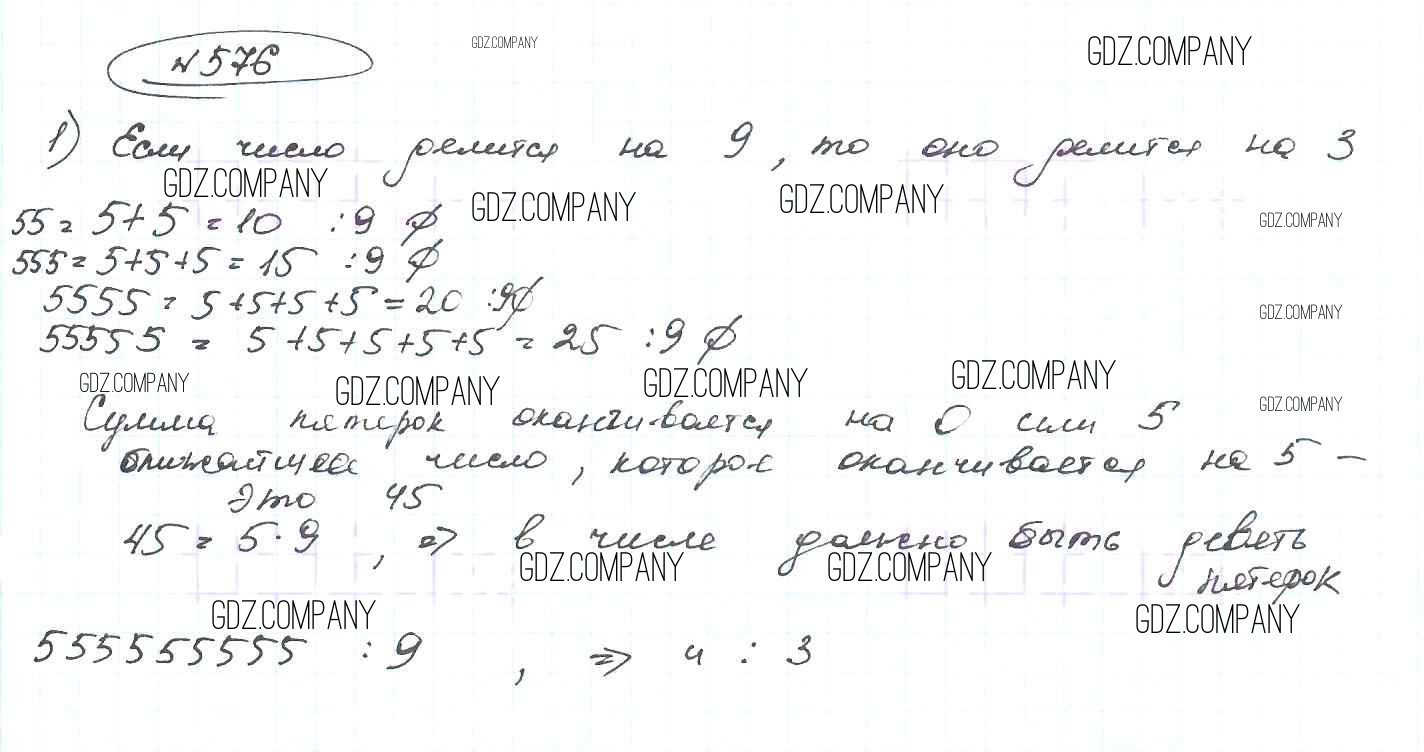 №576
GDZ.COMPANY GDZ.COMPANY
1) Если число делится на 9, то оно делится на 3
GDZ.COMPANY GDZ.COMPANY GDZ.COMPANY GDZ.COMPANY
55 = 5+5 = 10 :9 ∅
555 = 5+5+5 = 15 :9 ∅
5555 = 5+5+5+5 = 20 :9∅
GDZ.COMPANY
55555 = 5+5+5+5+5 = 25 :9 ∅
GDZ.COMPANY GDZ.COMPANY GDZ.COMPANY GDZ.COMPANY GDZ.COMPANY
Сумма пятерок оканчивается на 0 или 5
ближайшее число, которое оканчивается на 5 –
это 45
45 = 5·9, => в числе должно быть девять
пятерок
GDZ.COMPANY GDZ.COMPANY
GDZ.COMPANY GDZ.COMPANY
555555555 :9, => и : 3